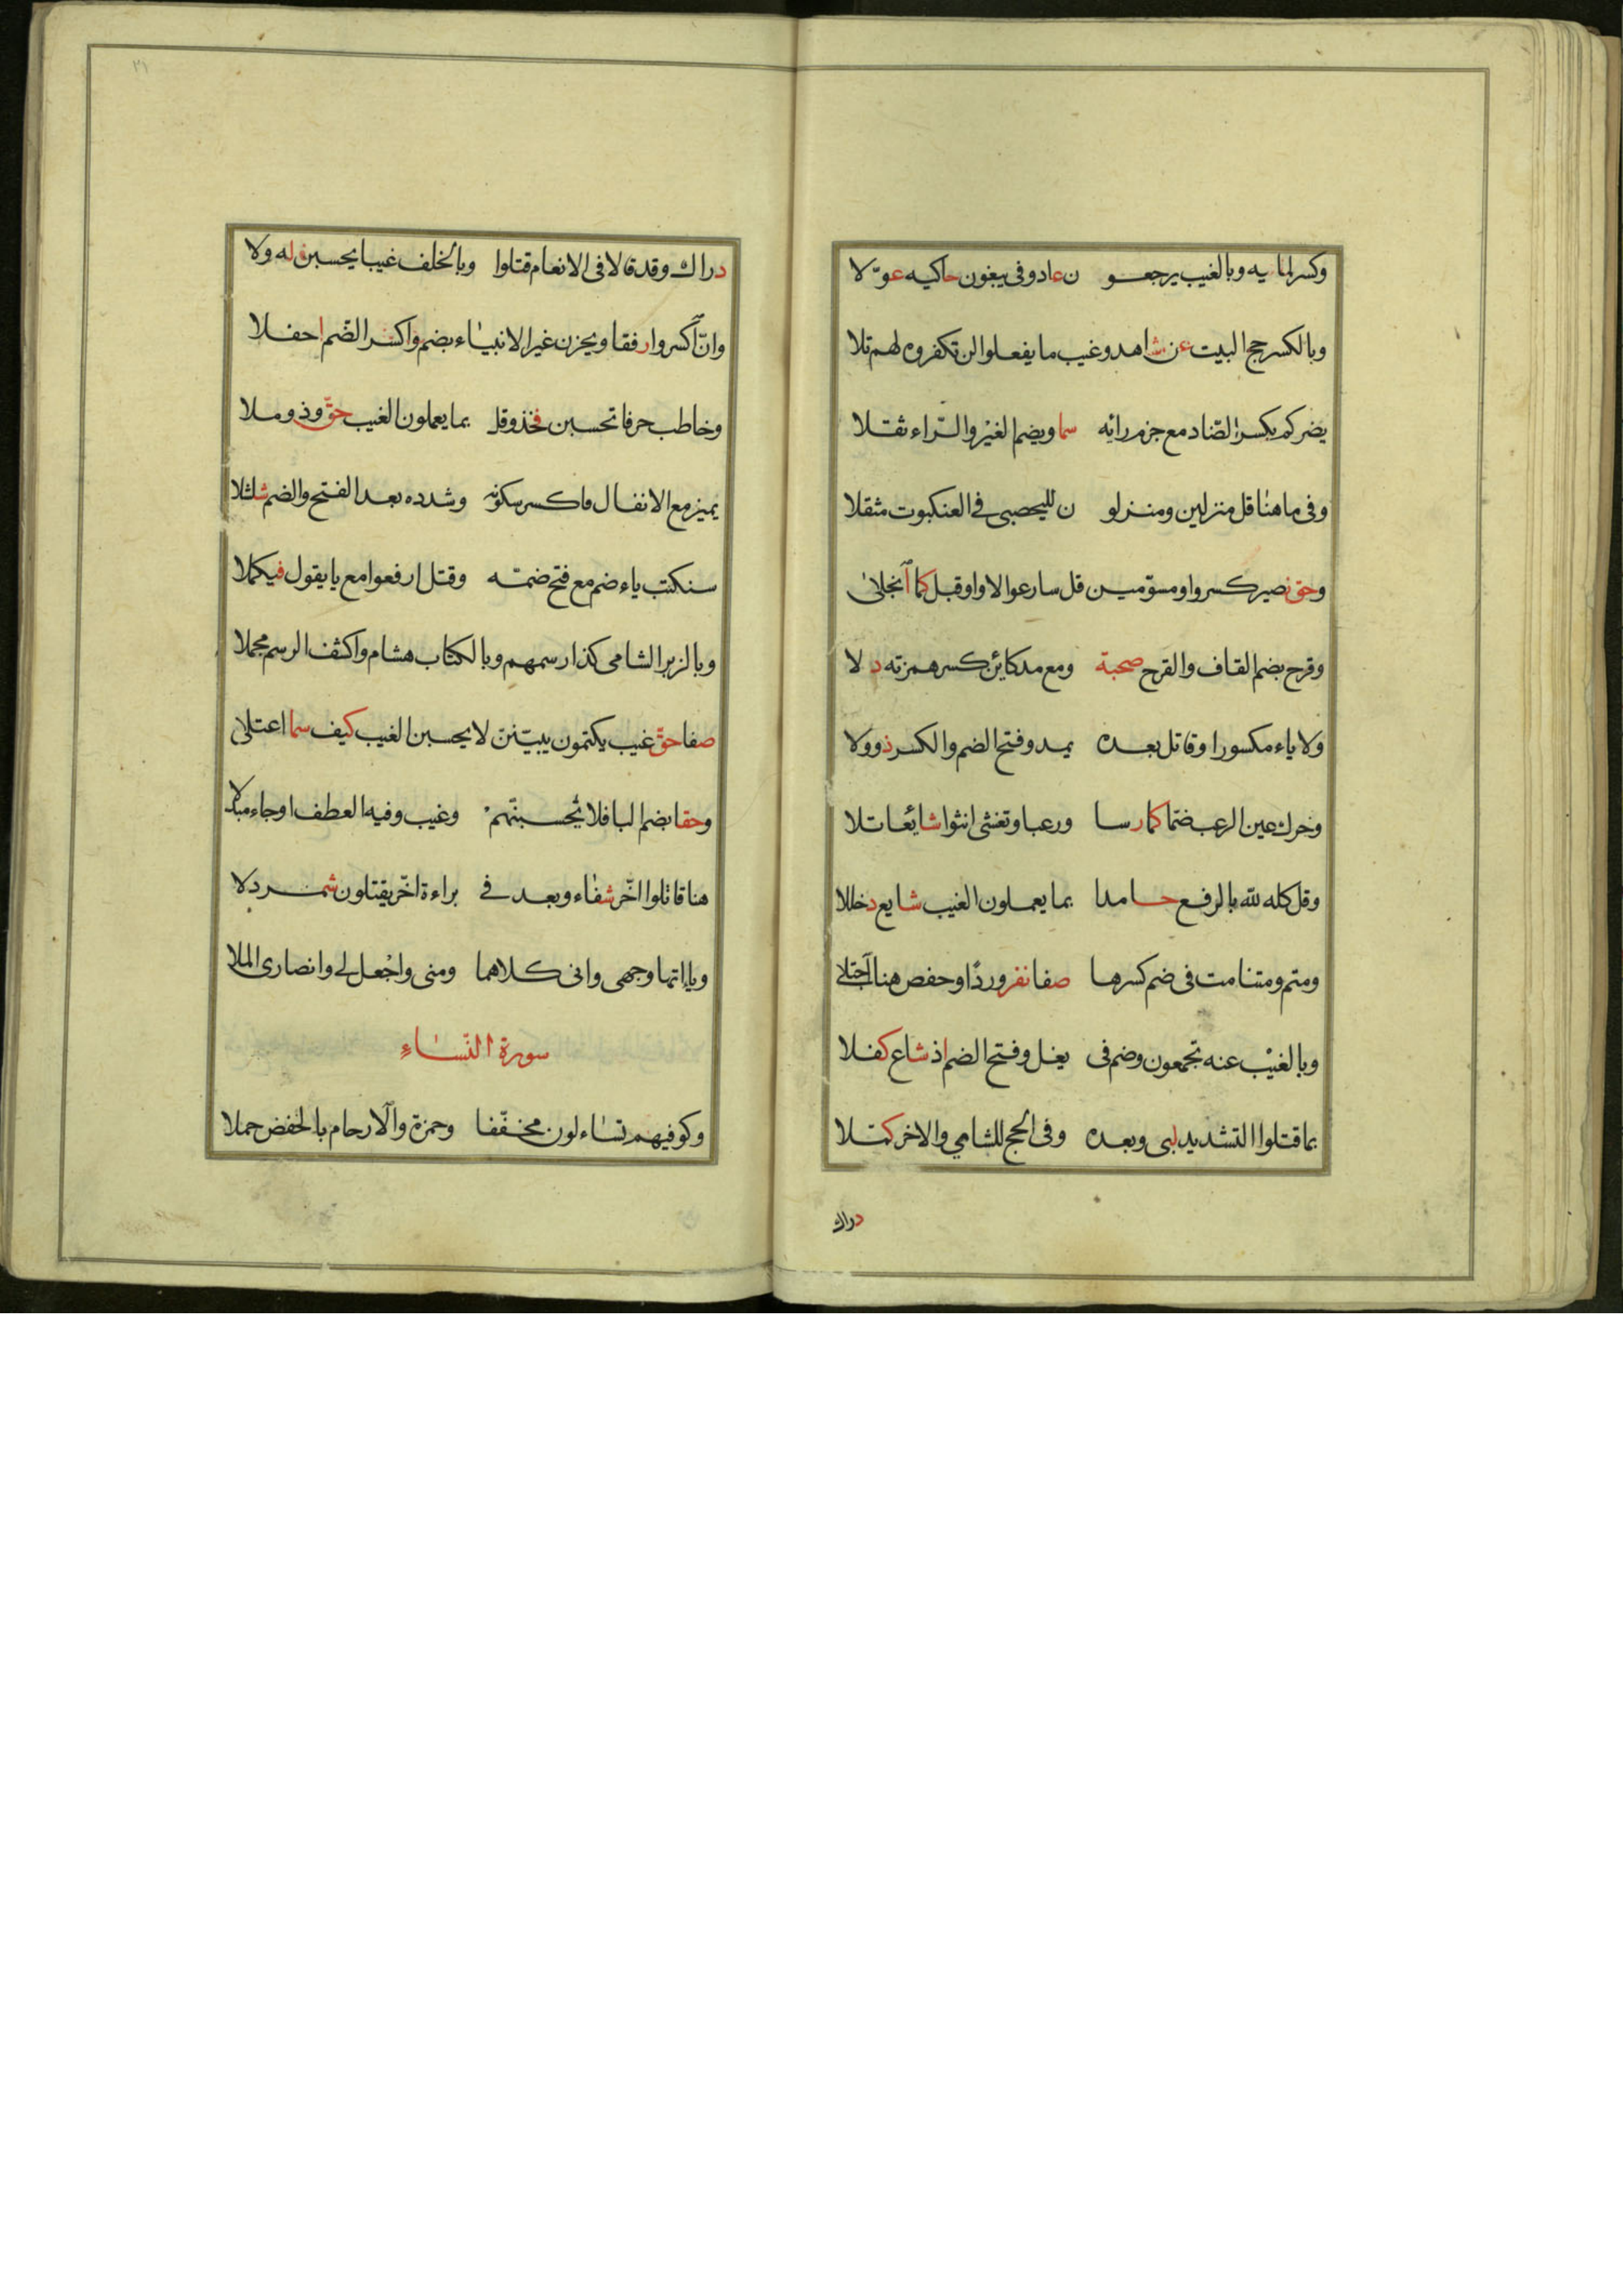 وكسر لما فيه وبالغيب يرجعو ن عاد وفى يبغون حاكيه عوّلا
وبالكسر حج البيت عن شاهد وغيب ما يفعلوا لن تكفروه لهم تلا
يضركم بكسر الضاد مع جزم رائه سما ويضم الغير والراء ثقلا
وفى ما هنا قل منزلين ومنزلو ن لليحصبى فى العنكبوت مثقلا
وحق نصير كسر واو مسوّمين قل سارعوا لا واو قبل كما انجلى
وقرح بضم القاف والقرح صحبة ومع مد كائن كسر همزته دلا
ولا ياء مكسورا وقاتل بعده يمد وفتح الضم والكسر ذو ولا
وحرك عين الرعب ضما كما رسا ورعبا وتغشى انثوا شائعا تلا
وقل كله لله بالرفع حامدا بما يعملون الغيب شايع دخللا
ومتم ومتنا مت فى ضم كسرها صفا نفر وردًا وحفص هنا اجتلى
وبالغيب عنه تجمعون وضم فى يغل وفتح الضم اذ شاع كفلا
بما قتلوا التشديد لبى وبعده وفى الحج للشامي والاخر كملا
دراك
٣١
دراك وقد قالا فى الانعام قتلوا وبالخلف غيبا يحسبن له ولا
وانّ اكسروا رفقا ويحزن غير الانبياء بضم واكسر الضّم احفلا
وخاطب حرفا تحسبن فخذ وقل بما يعملون الغيب حقّ وذو ملا
يميز مع الانفال فاكسر سكونه وشدده بعد الفتح والضم شلشلا
سنكتب ياء ضم مع فتح ضمّه وقتل ارفعوا مع يا يقول فيكملا
وبالزبر الشامى كذا رسمهم وبالكتاب هشام واكشف الرسم مجملا
صفا حقّ غيب يكتمون يبيّننّ لا يحسبن الغيب كيف سما اعتلى
وحقا بضم البا فلا يحسبنّهم وغيب وفيه العطف او جاء مبدلا
هنا قاتلوا اخّر شفاء وبعد فى براءة اخّر يقتلون شمردلا
ويااتها وجهى وانى كلاهما ومنى واجعل لى وانصارى الملا
سورة النّساء
وكوفيهم تساءلون مخفّفا وحمزة والارحام بالخفض جملا